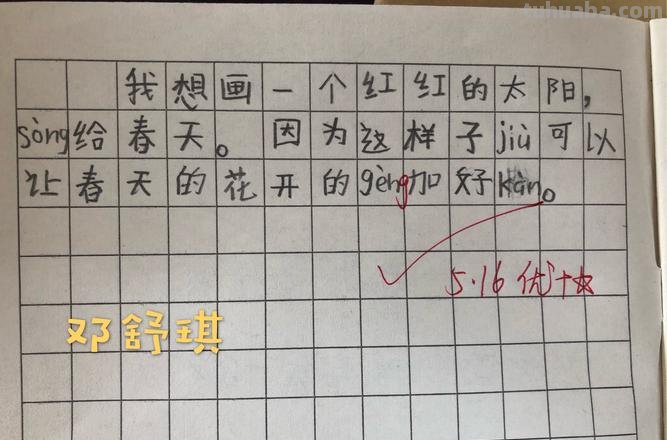 tuhuaba.com
我想画一个红红的太阳，
sòng给春天。因为这样子jiù可以
让春天的花开的gèng加好kàn。
5.16 优+☆
邓舒琪